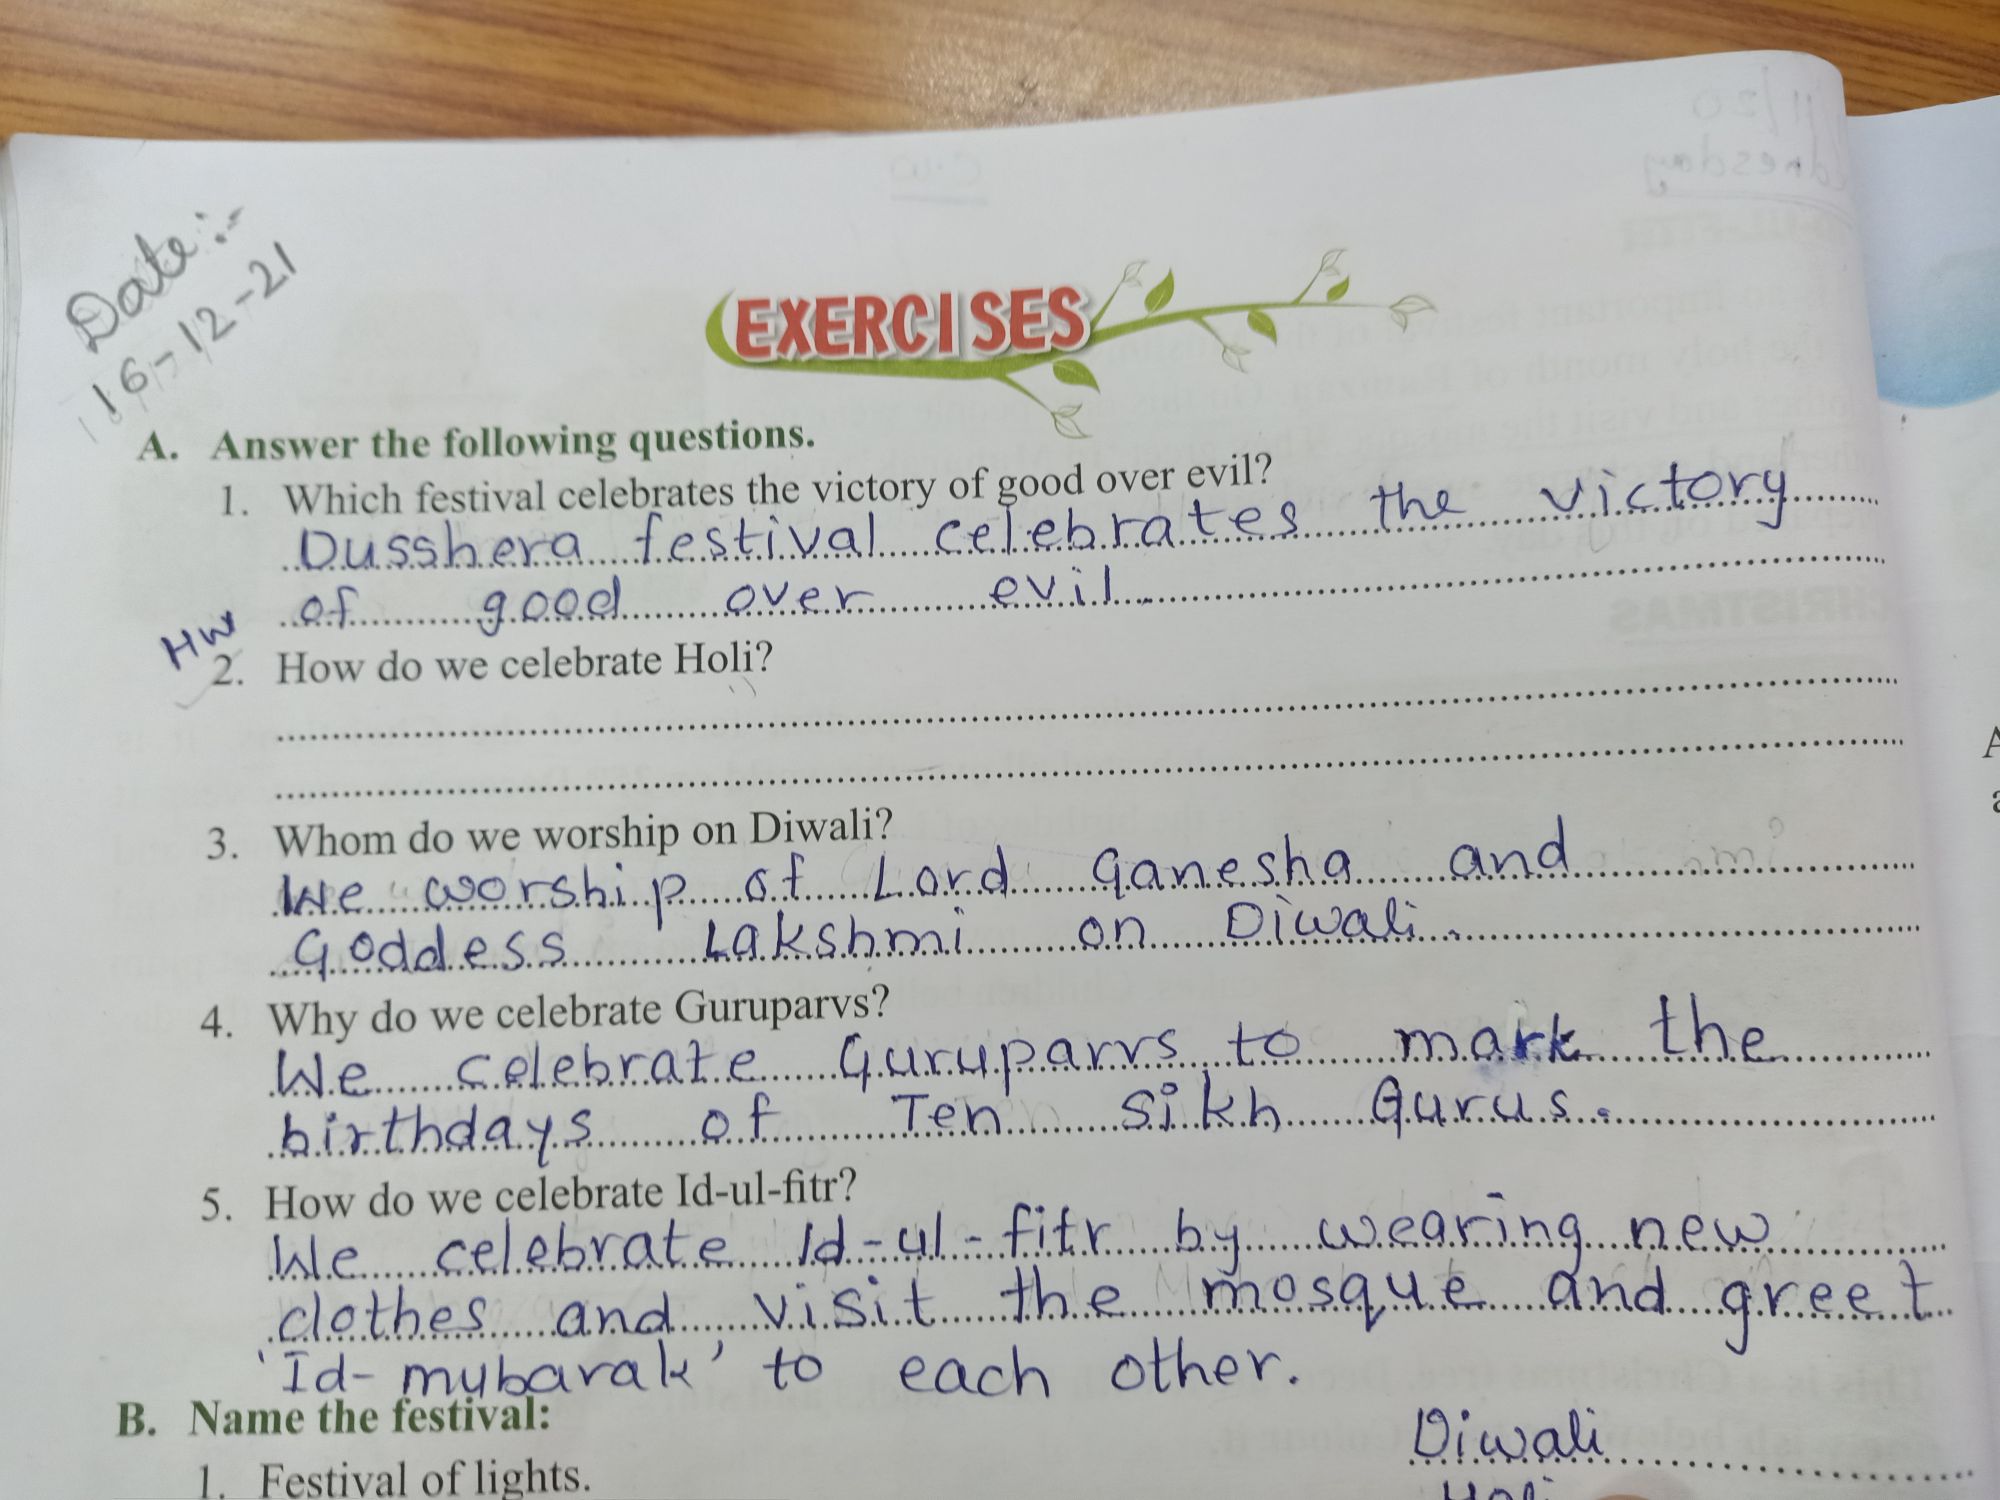 Date:-
16-12-21
EXERCISES
A. Answer the following questions.
1. Which festival celebrates the victory of good over evil?
Dusshera festival celebrates the victory
of good over evil.
HW
2. How do we celebrate Holi?
3. Whom do we worship on Diwali?
We worship of Lord Ganesha and
Goddess Lakshmi on Diwali.
4. Why do we celebrate Guruparvs?
We celebrate Guruparvs to mark the
birthdays of Ten Sikh Gurus.
5. How do we celebrate Id-ul-fitr?
We celebrate Id-ul-fitr by wearing new
clothes and visit the mosque and greet
'Id-mubarak' to each other.
B. Name the festival:
1. Festival of lights. Diwali
Holi